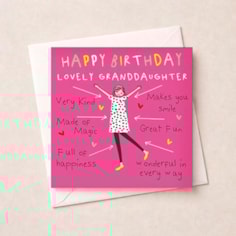 HAPPY BIRTHDAY
LOVELY GRANDDAUGHTER
Very Kind
Makes you
Smile
Made of
Magic
Great Fun
Full of
happiness
Wonderful in
every way